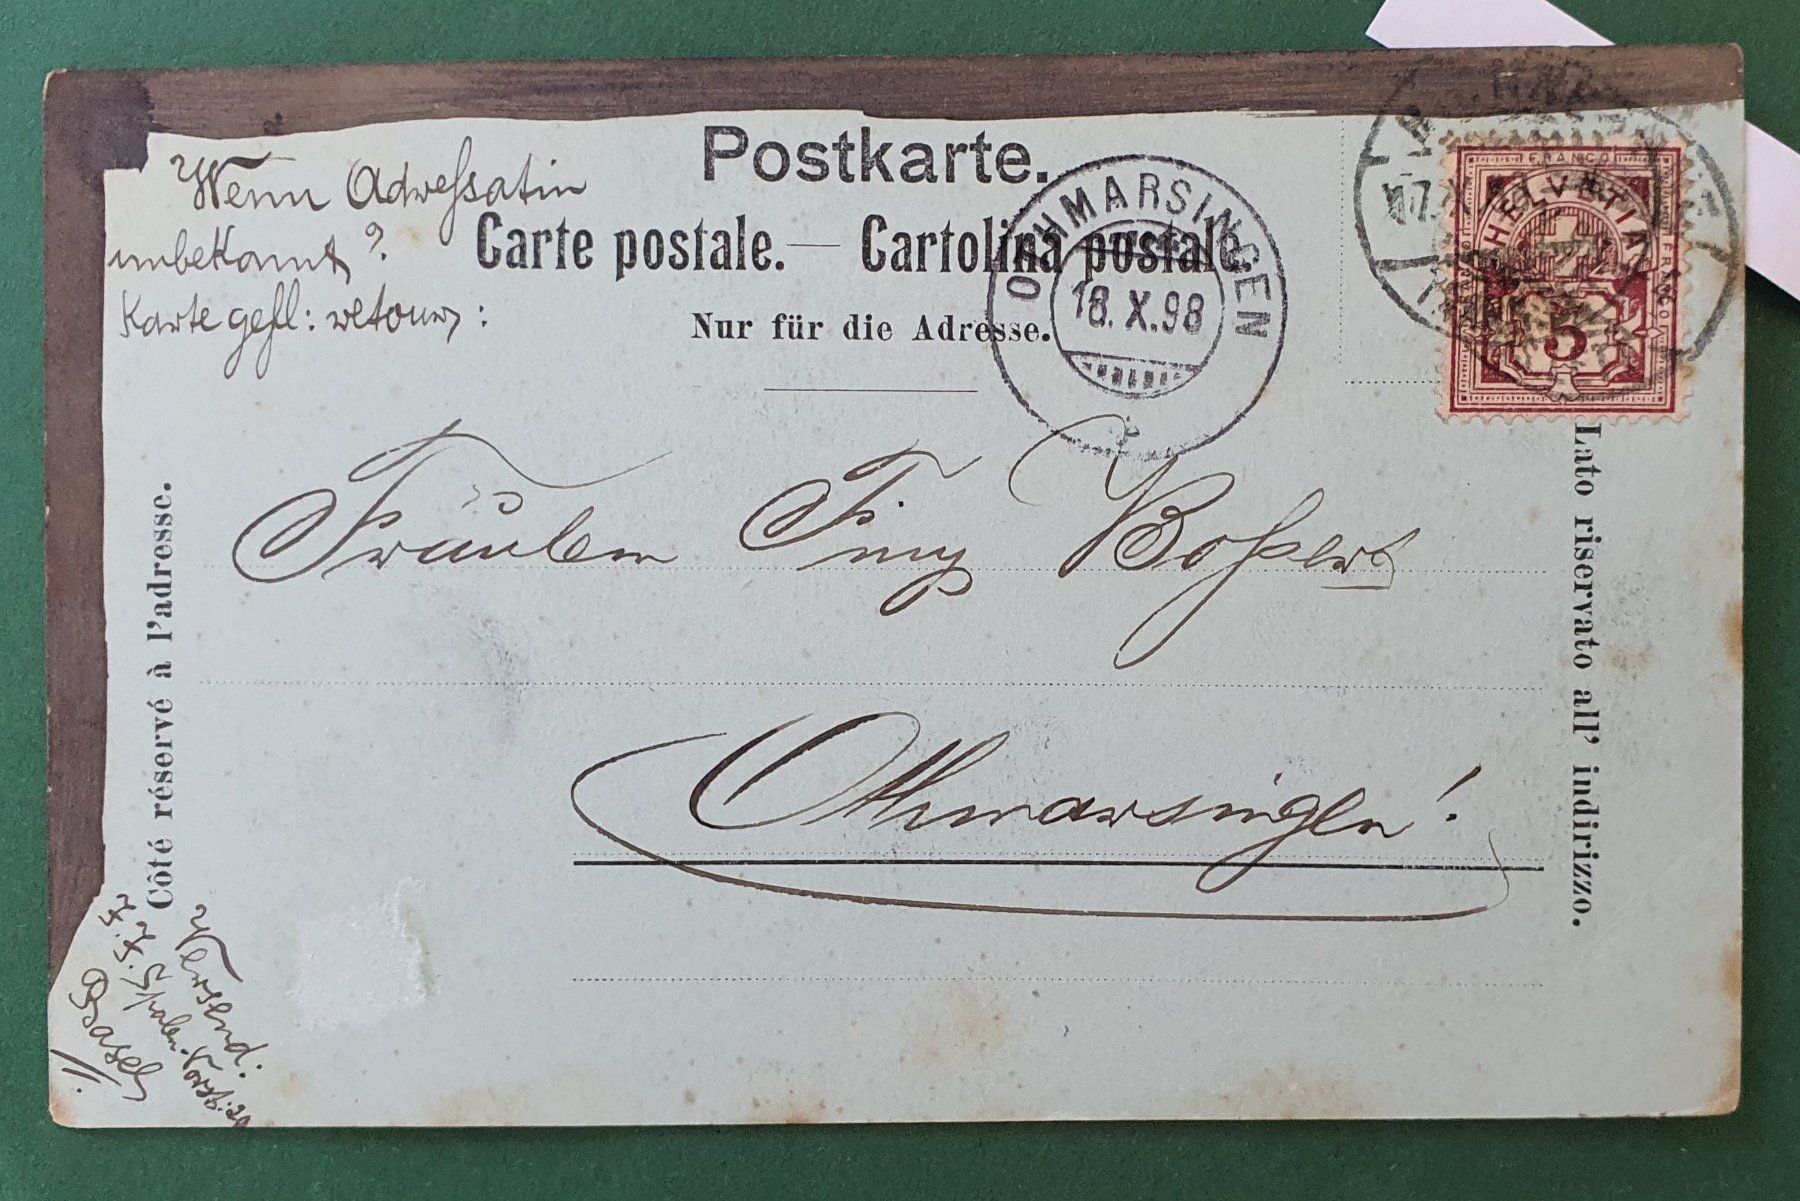 Postkarte.
Carte postale. — Cartolina postale.
Nur für die Adresse.
Wenn Adressatin
unbekannt?
Karte gefl: retour:
OTHMARSINGEN
18. X. 98
FRANCO
HELVETIA
FRANCO
5
Fräulein Bossert
Othmarsingen!
Côté réservé à l'adresse.
Lato riservato all' indirizzo.
Versend:
Spalen-Vorst: 20
Basel